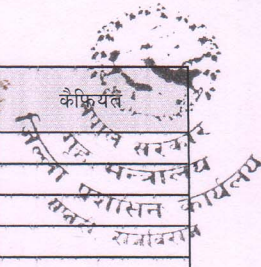 कैफियत
नेपाल सरकार
गृह मन्त्रालय
जिल्ला प्रशासन कार्यालय